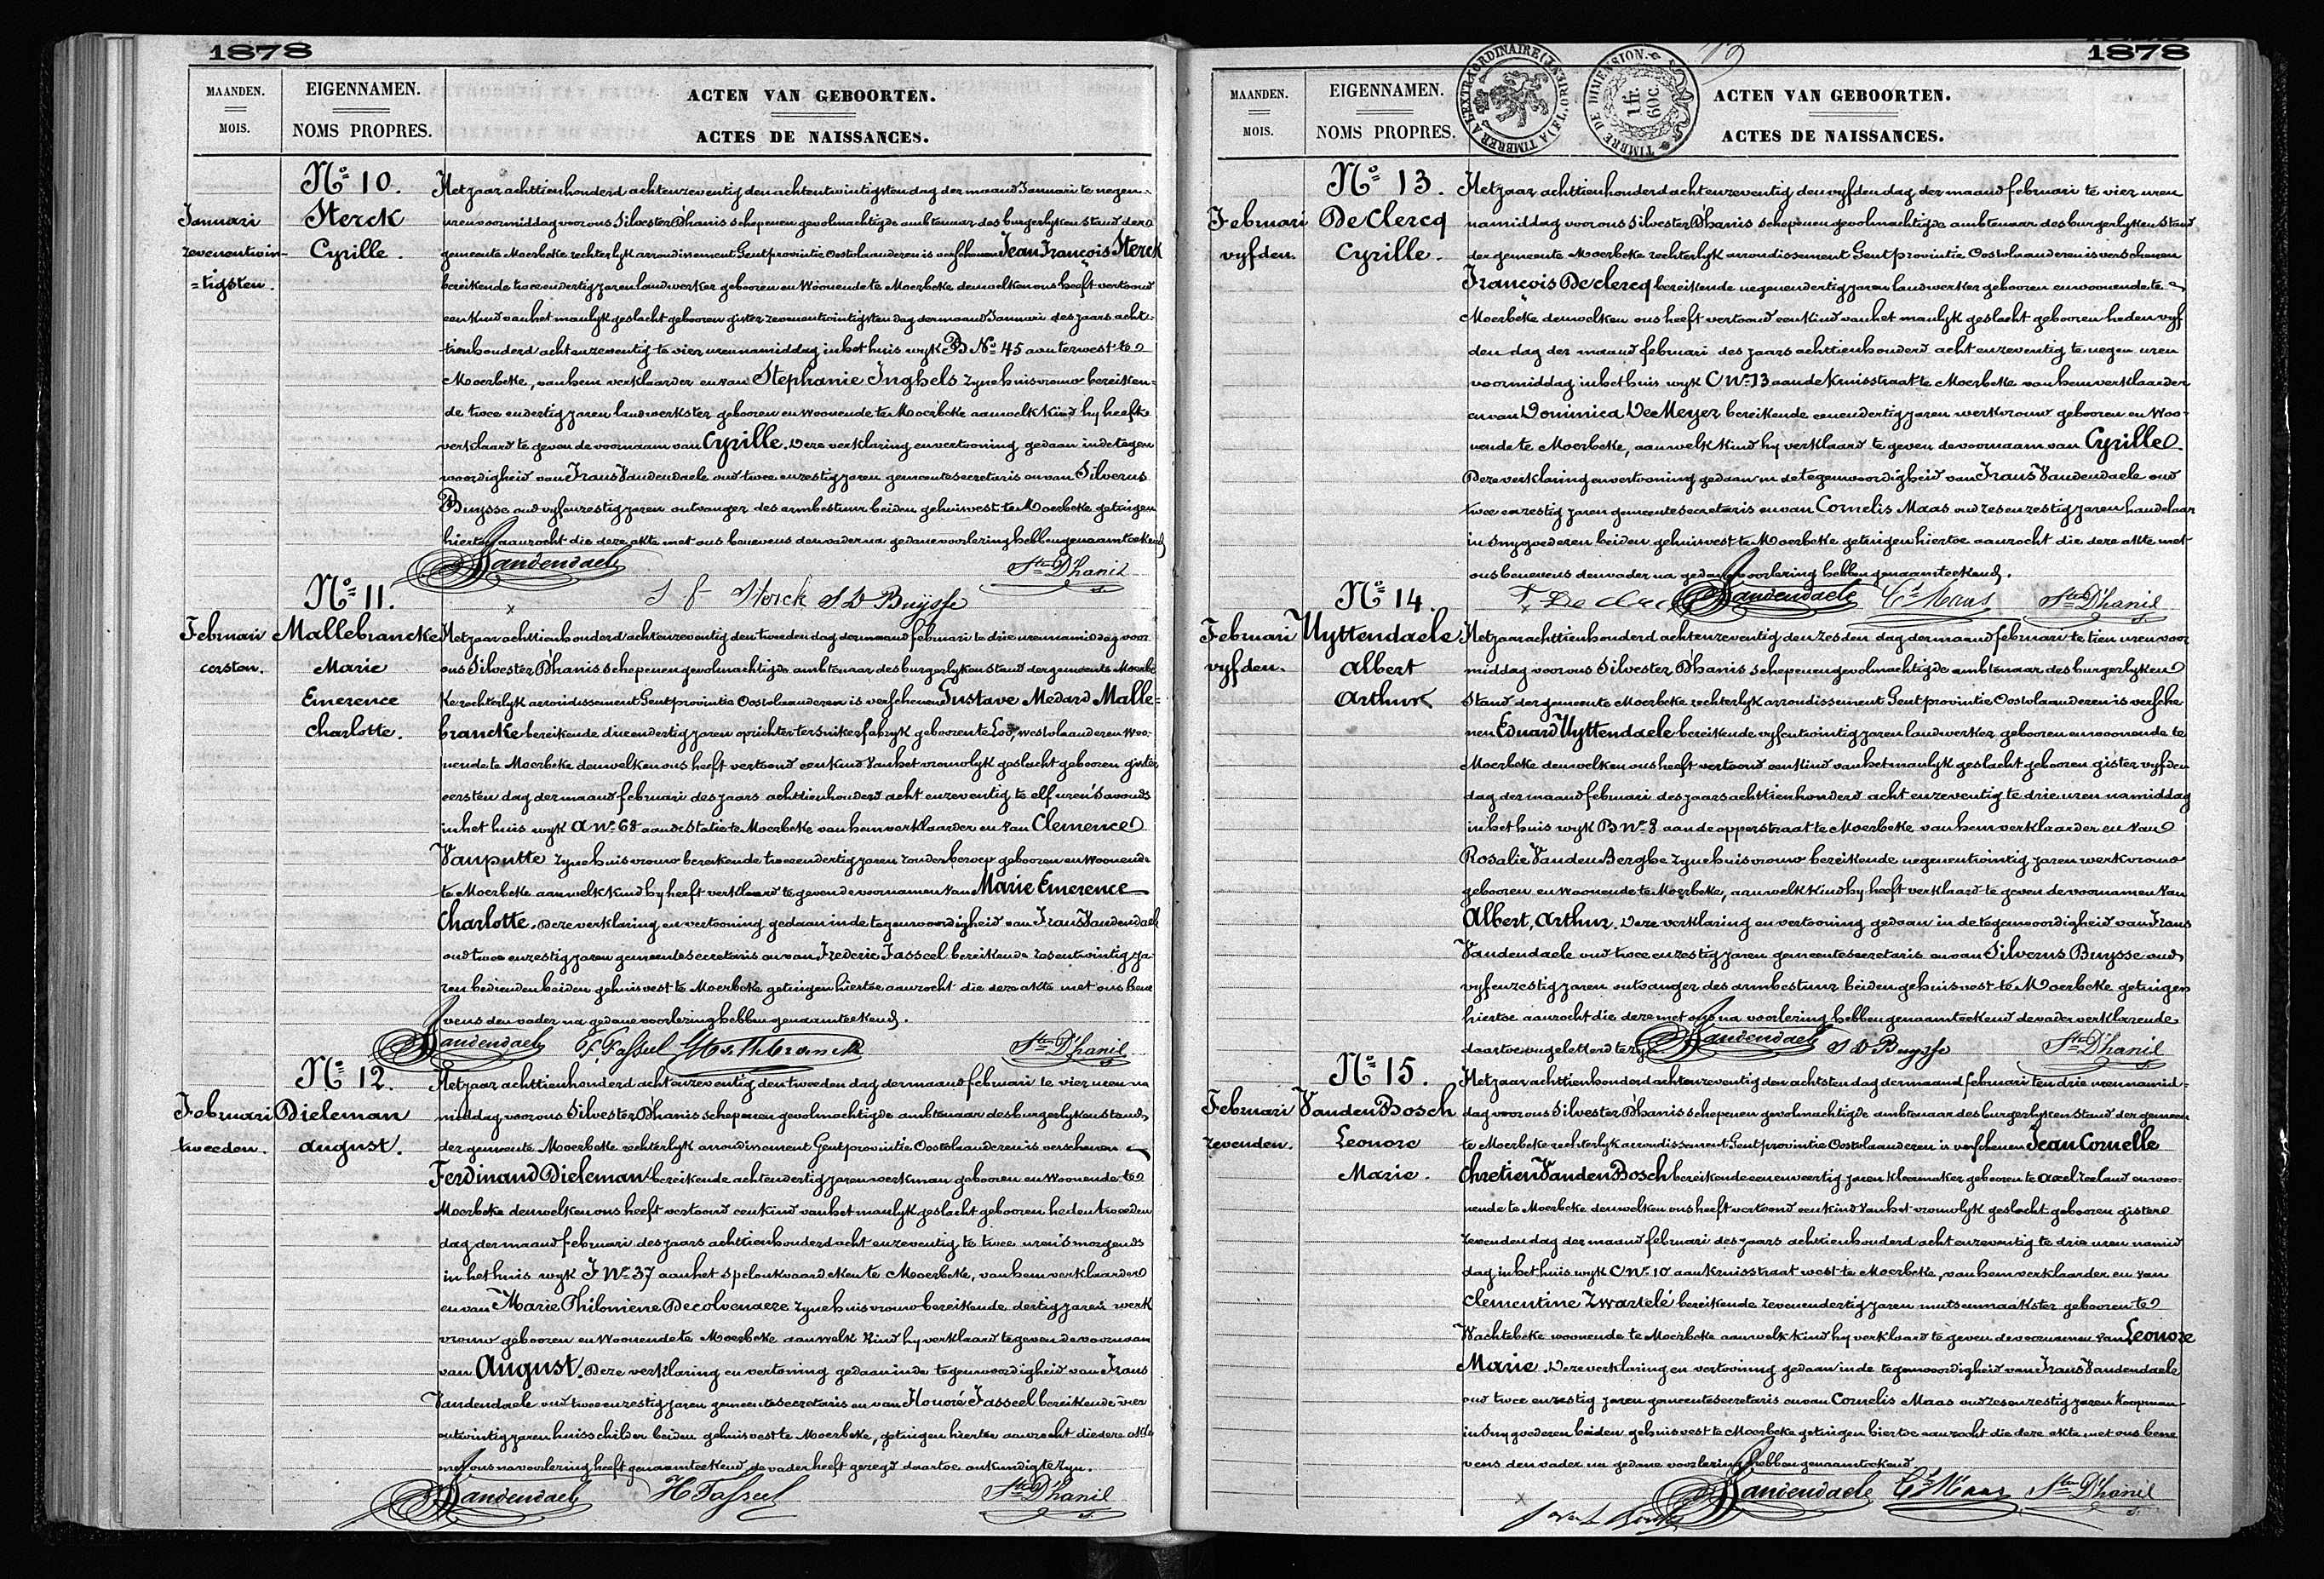 1878
MAANDEN.
MOIS.
EIGENNAMEN.
NOMS PROPRES.
ACTEN VAN GEBOORTEN.
ACTES DE NAISSANCES.
Nº 10.
Januari
zevenentwin-
=tigsten.
Sterck
Cyrille.
Het jaar achttienhonderd achtenzeventig den achtentwintigsten dag der maand Januari te negen
uren voormiddag voor ons Silvester D'hanis schepenen gevolmachtigde ambtenaar des burgerlyken stand der
gemeente Moerbeke rechterlyk arrondissement Gent provintie Oostvlaanderen is verschenen Jean François Sterck
bereikende twee en dertig jaren landwerker geboren en Woonende te Moerbeke denwelken ons heeft vertoond
een kind van het manlyk geslacht geboren gister zevenentwintigsten dag der maand Januari des jaars acht-
tienhonderd acht en zeventig te vier uren namiddag in het huis wyk B Nº 45 aan terwest te
Moerbeke, van hem verklaarder en van Stephanie Inghels zyne huisvrouw bereiken=
de twee en dertig jaren landwerkster geboren en Woonende te Moerbeke aan welk kind hy heeft
verklaard te geven de voornaam van Cyrille. Deze verklaring en vertooning gedaan in de tegen
woordigheid van Frans Vandendaele oud twee en zestig jaren gemeentesecretaris en van Silverus
Buysse oud vyf en zestig jaren ontvanger des armbestuur beiden gehuisvest te Moerbeke getuigen
hiertoe aanzocht die deze akte met ons benevens den vader na gedane voorlezing hebben genaamteekend
Vandendaele
J f Sterck S D Buysse
Ster D'hanis
Nº 11.
Februari
eersten.
Mallebrancke
Marie
Emerence
Charlotte.
Het jaar achttienhonderd achtenzeventig den tweeden dag der maand februari te drie uren namiddag voor
ons Silvester D'hanis schepenen gevolmachtigde ambtenaar des burgerlyken stand der gemeente Moerbe
ke rechterlyk arrondissement Gent provintie Oostvlaanderen is verschenen Gustave Medard Malle=
brancke bereikende drie en dertig jaren oprichter ter suikerfabryk geboren te Loo, westvlaanderen Woo-
nende te Moerbeke denwelken ons heeft vertoond een kind van het vrouwlyk geslacht geboren gister
eersten dag der maand februari des jaars achttienhonderd acht en zeventig te elf uren 's avonds
in het huis wyk A Nº 68 aan de statie te Moerbeke van hem verklaarder en van Clemence
Vanputte zyne huisvrouw bereikende twee en dertig jaren zonder beroep geboren en Woonende
te Moerbeke aan welk kind hy heeft verklaard te geven de voornamen van Marie Emerence
Charlotte. Deze verklaring en vertooning gedaan in de tegenwoordigheid van Frans Vandendaele
oud twee en zestig jaren gemeentesecretaris en van Frederic Fasseel bereikende zesentwintig ja-
ren bedienden beiden gehuisvest te Moerbeke getuigen hiertoe aanzocht die deze akte met ons bene
vens den vader na gedane voorlezing hebben genaamteekend.
Vandendaele F. Fasseel Mallebrancke Ster D'hanis
Nº 12.
Februari
tweeden.
Dieleman
August.
Het jaar achttienhonderd achtenzeventig den tweeden dag der maand februari te vier uren na
middag voor ons Silvester D'hanis schepenen gevolmachtigde ambtenaar des burgerlyken stand
der gemeente Moerbeke rechterlyk arrondissement Gent provintie Oostvlaanderen is verschenen
Ferdinand Dieleman bereikende achtendertig jaren werkman geboren en Woonende te
Moerbeke denwelken ons heeft vertoond een kind van het manlyk geslacht geboren heden tweeden
dag der maand februari des jaars achttienhonderd acht en zeventig te twee uren 's morgends
in het huis wyk J Nº 37 aan het spelonkvaardeken te Moerbeke, van hem verklaarder
en van Marie Philomène Decolvenaere zyne huisvrouw bereikende dertig jaren werk
vrouw geboren en Woonende te Moerbeke aan welk kind hy verklaard te geven de voornaam
van August. Deze verklaring en vertoning gedaan in de tegenwoordigheid van Frans
Vandendaele oud twee en zestig jaren gemeentesecretaris en van Honoré Fasseel bereikende vier
entwintig jaren huisschilder beiden gehuisvest te Moerbeke, getuigen hiertoe aanzocht die deze akte
met ons na voorlezing heeft genaamteekend de vader heeft gezegd daartoe onkundig te zyn.
Vandendaele H Fasseel Ster D'hanis
1878
19
TIMBRER A L'EXTRAORDINAIRE
TIMBRE DE DIMENSION.
1 fr. 60c.
MAANDEN.
MOIS.
EIGENNAMEN.
NOMS PROPRES.
ACTEN VAN GEBOORTEN.
ACTES DE NAISSANCES.
Nº 13.
Februari
vyfden.
De Clercq
Cyrille.
Het jaar achttienhonderd achtenzeventig den vyfden dag der maand februari te vier uren
namiddag voor ons Silvester D'hanis schepenen gevolmachtigde ambtenaar des burgerlyken stand
der gemeente Moerbeke rechterlyk arrondissement Gent provintie Oostvlaanderen is verschenen
François Declercq bereikende negenendertig jaren landwerker geboren en woonende te
Moerbeke denwelken ons heeft vertoond een kind van het manlyk geslacht geboren heden vyf
den dag der maand februari des jaars achttienhonderd acht en zeventig te negen uren
voormiddag in het huis wyk C Nº 13 aan de Kruisstraat te Moerbeke van hem verklaarder
en van Dominica De Meyer bereikende eenendertig jaren werkvrouw geboren en Woo-
nende te Moerbeke, aan welk kind hy verklaard te geven de voornaam van Cyrille
Deze verklaring en vertooning gedaan in de tegenwoordigheid van Frans Vandendaele oud
twee en zestig jaren gemeentesecretaris en van Cornelis Maas oud zes en zestig jaren handelaar
in snygoederen beiden gehuisvest te Moerbeke getuigen hiertoe aanzocht die deze akte met
ons benevens den vader na gedane voorlezing hebben genaamteekend.
F. De Clerc Vandendaele Cs Maas Ster D'hanis
Nº 14.
Februari
vyfden.
Uyttendaele
Albert
Arthur
Het jaar achttienhonderd achtenzeventig den zesden dag der maand februari te tien uren voor
middag voor ons Silvester D'hanis schepenen gevolmachtigde ambtenaar des burgerlyken
stand der gemeente Moerbeke rechterlyk arrondissement Gent provintie Oostvlaanderen is versche
nen Eduard Uyttendaele bereikende vyfentwintig jaren landwerker geboren en woonende te
Moerbeke denwelken ons heeft vertoond een kind van het manlyk geslacht geboren gister vyfden
dag der maand februari des jaars achttienhonderd acht en zeventig te drie uren namiddag
in het huis wyk B Nº 8 aan de opperstraat te Moerbeke van hem verklaarder en van
Rosalie Vanden Berghe zyne huisvrouw bereikende negenentwintig jaren werkvrouw
geboren en Woonende te Moerbeke, aan welk kind hy heeft verklaard te geven de voornamen van
Albert, Arthur. Deze verklaring en vertooning gedaan in de tegenwoordigheid van Frans
Vandendaele oud twee en zestig jaren gemeentesecretaris en van Silverus Buysse oud
vyf en zestig jaren ontvanger des armbestuur beiden gehuisvest te Moerbeke getuigen
hiertoe aanzocht die deze met ons na voorlezing hebben genaamteekend de vader verklarende
daartoe ongeletterd te zyn. Vandendaele S D Buysse Ster D'hanis
Nº 15.
Februari
zevenden.
Vanden Bosch
Leonore
Marie.
Het jaar achttienhonderd achtenzeventig den achtsten dag der maand februari ten drie uren namid=
dag voor ons Silvester D'hanis schepenen gevolmachtigde ambtenaar des burgerlyken stand der gemeen
te Moerbeke rechterlyk arrondissement Gent provintie Oostvlaanderen is verschenen Jean Cornelle
Chretien Vanden Bosch bereikende eenenveertig jaren kleermaker geboren te Axel Zeeland en woo-
nende te Moerbeke denwelken ons heeft vertoond een kind van het vrouwlyk geslacht geboren gister
zevenden dag der maand februari des jaars achttienhonderd acht en zeventig te drie uren namid
dag in het huis wyk C Nº 10 aan Kruisstraat west te Moerbeke, van hem verklaarder en van
Clementine Zwartelé bereikende zevenendertig jaren mutsenmaakster geboren te
Wachtebeke woonende te Moerbeke aan welk kind hy verklaard te geven de voornamen van Leonore
Marie. Deze verklaring en vertooning gedaan in de tegenwoordigheid van Frans Vandendaele
oud twee en zestig jaren gemeentesecretaris en van Cornelis Maas oud zes en zestig jaren Koopman
in snygoederen beiden gehuisvest te Moerbeke getuigen hiertoe aanzocht die deze akte met ons bene
vens den vader na gedane voorlezing hebben genaamteekend.
Vandendaele Cs Maas Ster D'hanis